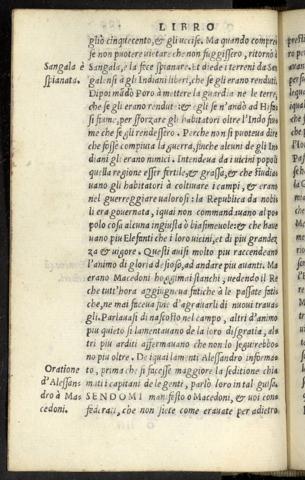 LIBRO
gliò cinquecento, & gli uccise. Ma quando comprese
se non puotere uietare che non fuggissero, ritornò à
Sangala è
spianata.
Sangala, e la fece spianare. Et diede i terreni da San
galensi à gli Indiani liberi, che se gli erano renduti.
Dipoi mādò Poro à mettere la guardia ne le terre,
che se gli erano rendute: & egli se n'andò ad Hifaso
si fiume, per sforzare gli habitatori oltre l'Indo fiume
che se gli rendessero. Perche non si puoteua dire
che fosse compiuta la guerra, finche alcuni de gli Indiani
gli erano nimici. Intendeua da i uicini popoli
quella regione esser fertile, & grassa, & che studia
uano gli habitatori à coltiuare i campi, & erano
nel guerreggiare ualorosi: la Republica da nobili
era gouernata, i quai non commandauano al po
polo cosa alcuna ingiusta ò biasimeuole: & che haue
uano piu Elefanti che i loro uicini, et di piu grandez
za & uigore. Questi auisi molto piu raccendeano
l'animo di gloria desioso, ad andare piu auanti. Ma
erano Macedoni hoggimai stanchi, uedendo il Re
che tutt'hora aggiugneua fatiche à le passate fatiche,
ne mai faceua fine d'agrauarli di nuoui trauagli.
Parlauasi di nascosto nel campo, altri d'animo
piu quieto si lamentauano de la loro disgratia, altri
piu arditi affermauano che non lo seguirebbono
piu oltre. De i quai lamenti Alessandro informato,
Oratione
d'Alessan
dro à Ma
cedoni.
prima che si facesse maggiore la seditione chia
mati i capitani de le genti, parlò loro in tal guisa.
SENDOMI manifesto o Macedoni, & uoi confederati,
che non siete come erauate per adietro